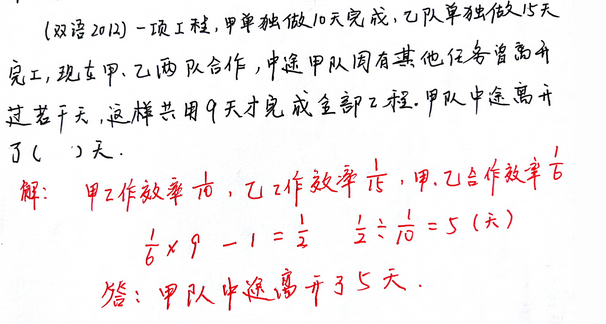 (双语2012)一项工程,甲单独做10天完成,乙队单独做15天
完工,现在甲、乙两队合作,中途甲队因有其他任务曾离开
过若干天,这样共用9天才完成全部工程.甲队中途离开
了( )天.
解: 甲工作效率1/10,乙工作效率1/15,甲、乙合作效率1/6
1/6×9-1=1/2 1/2÷1/10=5(天)
答:甲队中途离开了5天.